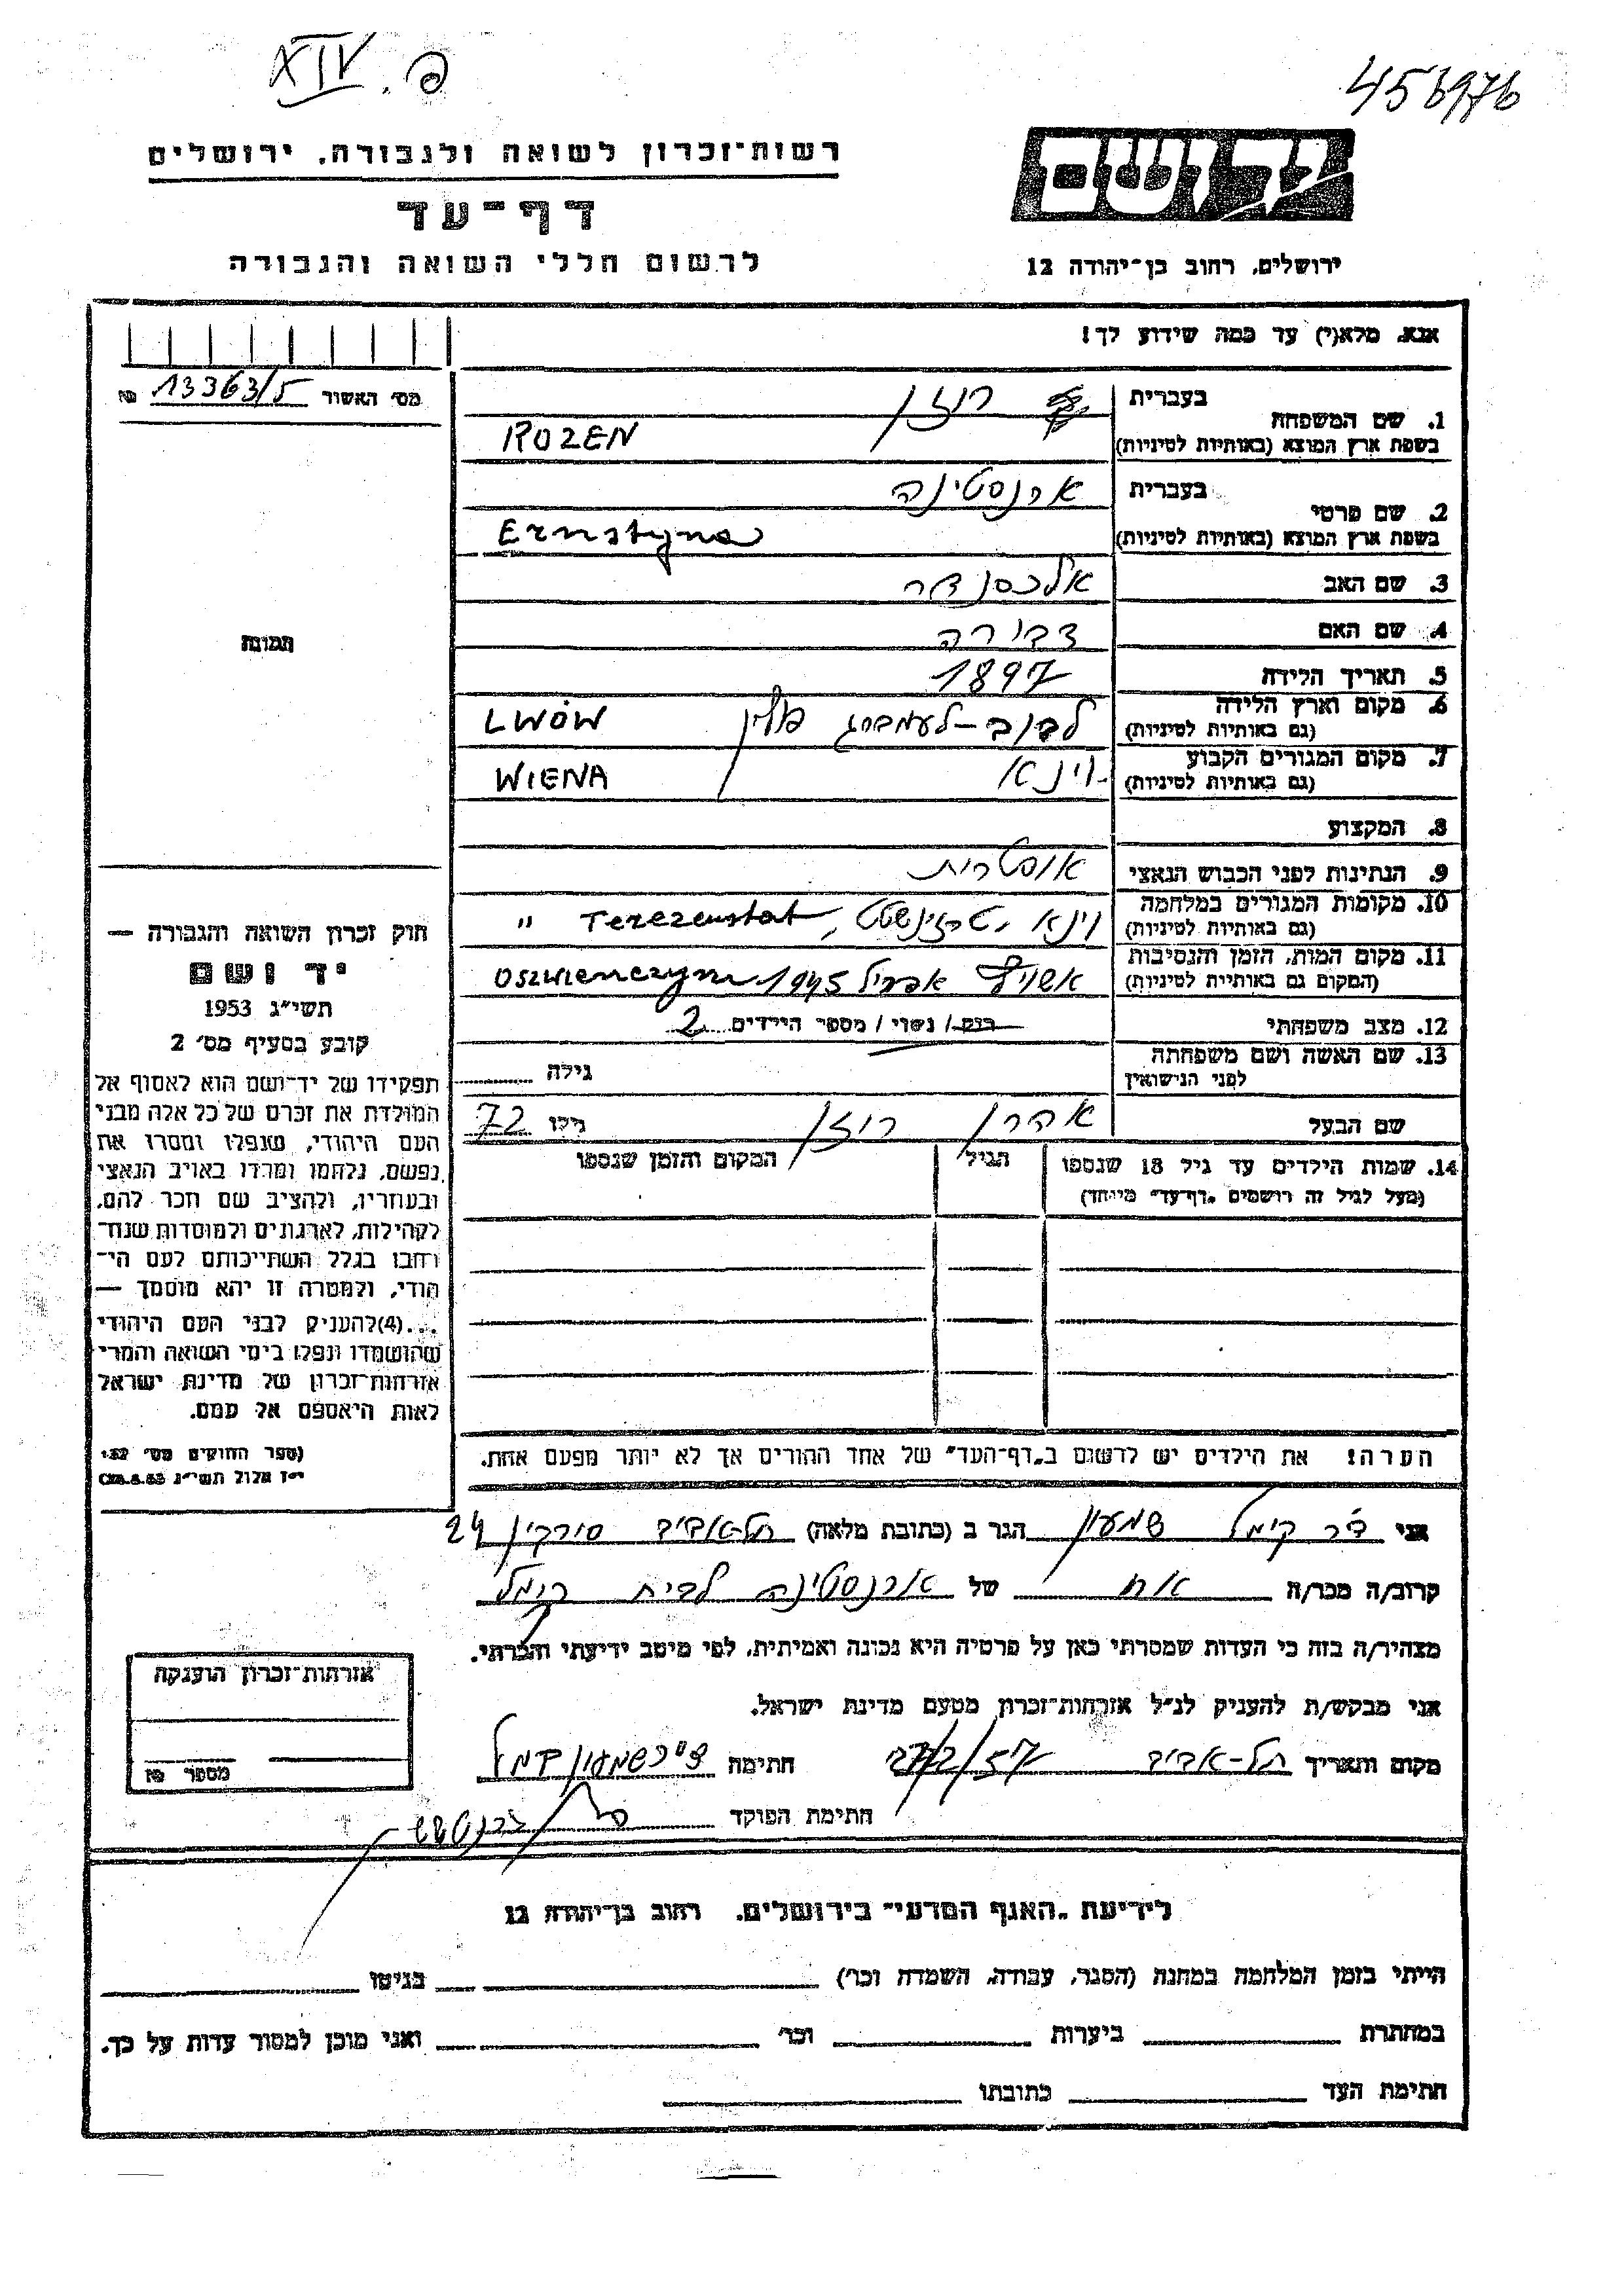 XIV. פ
456976
רשות־זכרון לשואה ולגבורה, ירושלים
יד ושם
דף־עד
לרשום חללי השואה והגבורה
ירושלים, רחוב בן־יהודה 12
אנא, מלא(י) עד כמה שידוע לך!
מס׳ האשור 13363/5
1. שם המשפחה בעברית רוזן
בשפת ארץ המוצא (באותיות לטיניות) ROZEN
2. שם פרטי בעברית ארנסטינה
בשפת ארץ המוצא (באותיות לטיניות) Ernstyna
3. שם האב אלכסנדר
4. שם האם דבורה
תמונה
5. תאריך הלידה 1897
6. מקום וארץ הלידה לבוב-לעמברג פולין LWÓW
(גם באותיות לטיניות)
7. מקום המגורים הקבוע וינא WIENA
(גם באותיות לטיניות)
8. המקצוע
9. הנתינות לפני הכבוש הנאצי אוסטרית
10. מקומות המגורים במלחמה וינא, טרזינשטט, Terezenstat "
(גם באותיות לטיניות)
11. מקום המות, הזמן והנסיבות אושויץ אפריל 1945 Oszwienczym
(המקום גם באותיות לטיניות)
12. מצב משפחתי רוק / נשוי / מספר הילדים 2
13. שם האשה ושם משפחתה
לפני הנישואין גילה
שם הבעל אהרן רוזן גילו 72
14. שמות הילדים עד גיל 18 שנספו הגיל המקום והזמן שנספו
(מעל לגיל זה רושמים „דף־עד” מיוחד)
חוק זכרון השואה והגבורה —
יד ושם
תשי״ג 1953
קובע בסעיף מס׳ 2
תפקידו של יד־ושם הוא לאסוף אל
המולדת את זכרם של כל אלה מבני
העם היהודי, שנפלו ומסרו את
נפשם, נלחמו ומרדו באויב הנאצי
ובעוזריו, ולהציב שם וזכר להם,
לקהילות, לארגונים ולמוסדות שנח־
רחבו בגלל השתייכותם לעם הי־
הודי, ולמטרה זו יהא מוסמך —
...(4)להעניק לבני העם היהודי
שהושמדו ונפלו בימי השואה והמרי
אזרחות־זכרון של מדינת ישראל
לאות היאספם אל עמם.
(ספר החוקים מס׳ 132
י״ז אלול תשי״ג 28.8.53)
הערה! את הילדים יש לרשום ב„דף־העד” של אחד ההורים אך לא יותר מפעם אחת.
אני ד״ר קימל שמעון הגר ב (כתובת מלאה) תל-אביב סירקין 24
קרוב/ה מכר/ה אח של ארנסטינה לבית קימל
מצהיר/ה בזה כי העדות שמסרתי כאן על פרטיה היא נכונה ואמיתית, לפי מיטב ידיעתי והכרתי.
אני מבקש/ת להעניק לנ״ל אזרחות־זכרון מטעם מדינת ישראל.
מקום ותאריך תל-אביב 27/2/57 חתימה ד״ר שמעון קמל
חתימת הפוקד
אזרחות־זכרון הוענקה
מספר
לידיעת „האגף המדעי” בירושלים, רחוב בן־יהודה 12
הייתי בזמן המלחמה במחנה (הסגר, עבודה, השמדה וכו׳) בגיטו
במחתרת ביערות וכו׳ ואני מוכן למסור עדות על כך.
חתימת העד כתובתו